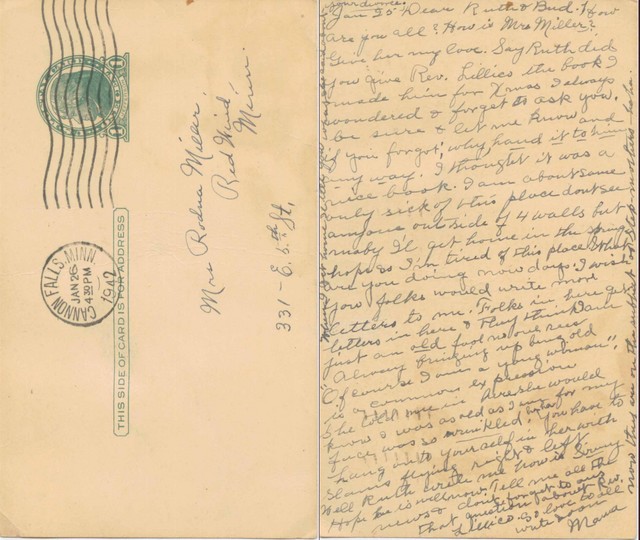 CANNON FALLS, MINN.
JAN 26
4 30 PM
1942
THIS SIDE OF CARD IS FOR ADDRESS
Mrs Rodna Miller.
Red Wind,
Minn.
331 - E. 6th St,
your divorce.
Jan 25 Dear Ruth & Bud. How
are you all? How is Mrs Miller?
Give her my love. Say Ruth did
you give Rev. Lillico the book I
made him for Xmas I always
wondered & forgot to ask you.
be sure & let me know and
if you forgot, why hand it to him
any way. I thought it was a
nice book. I am about some
only sick of this place dont see
anyone outside of 4 walls but
maby I'll get home in the spring
hope so I'm tired of this place. What
are you doing now days. I wish
you folks would write more
letters to me. Folks in here get
letters in here & They think I am
just an old fool no one
Always bringing up being old
"Of course I am a young woman",
is a common expression
She told me in she would
know I was as old as I am for my
face was so wrinkled. You have to
hang on to yourself in her with
slams flying right & left
Well Ruth write me how is Sonny
Hope he is well now. Tell me all the
news & dont forget to ans
that question about Rev.
Lillico. So love to all
write soon
Mama